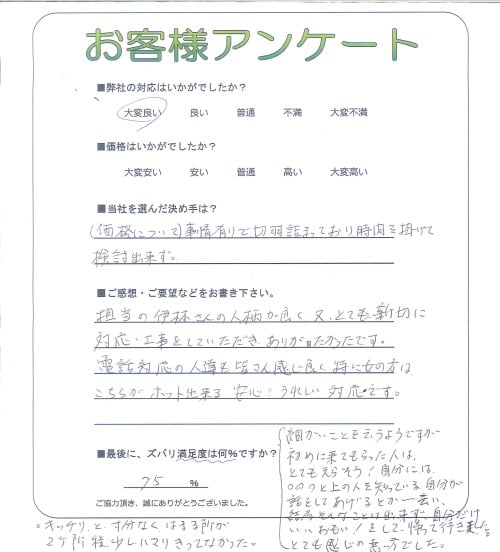 お客様アンケート
■弊社の対応はいかがでしたか？
大変良い 良い 普通 不満 大変不満
■価格はいかがでしたか？
大変安い 安い 普通 高い 大変高い
■当社を選んだ決め手は？
(価格について)事情有りで切羽詰まっており時間を掛けて
検討出来ず。
■ご感想・ご要望などをお書き下さい。
担当の伊林さんの人柄が良く又、とても親切に
対応・工事をしていただき、ありがたかったです。
電話対応の人達も皆さん感じ良く特に女の方は
こちらがホット出来る安心！うれしい対応です。
■最後に、ズバリ満足度は何%ですか？
75 %
ご協力頂き、誠にありがとうございました。
細かいことを言うようですが
初めに来てもらった人は、
とてもえらそう！自分には、
と上の人を知っている自分が
話をしてあげるとか言い、
結局そんなことは出来ず、自分だけ
いいおもい！をして、帰って行きました。
とても感じの悪い方でした。
。キッチリ、と、寸分なくはまる所が
2ヶ所程少しハマりきってなかった。